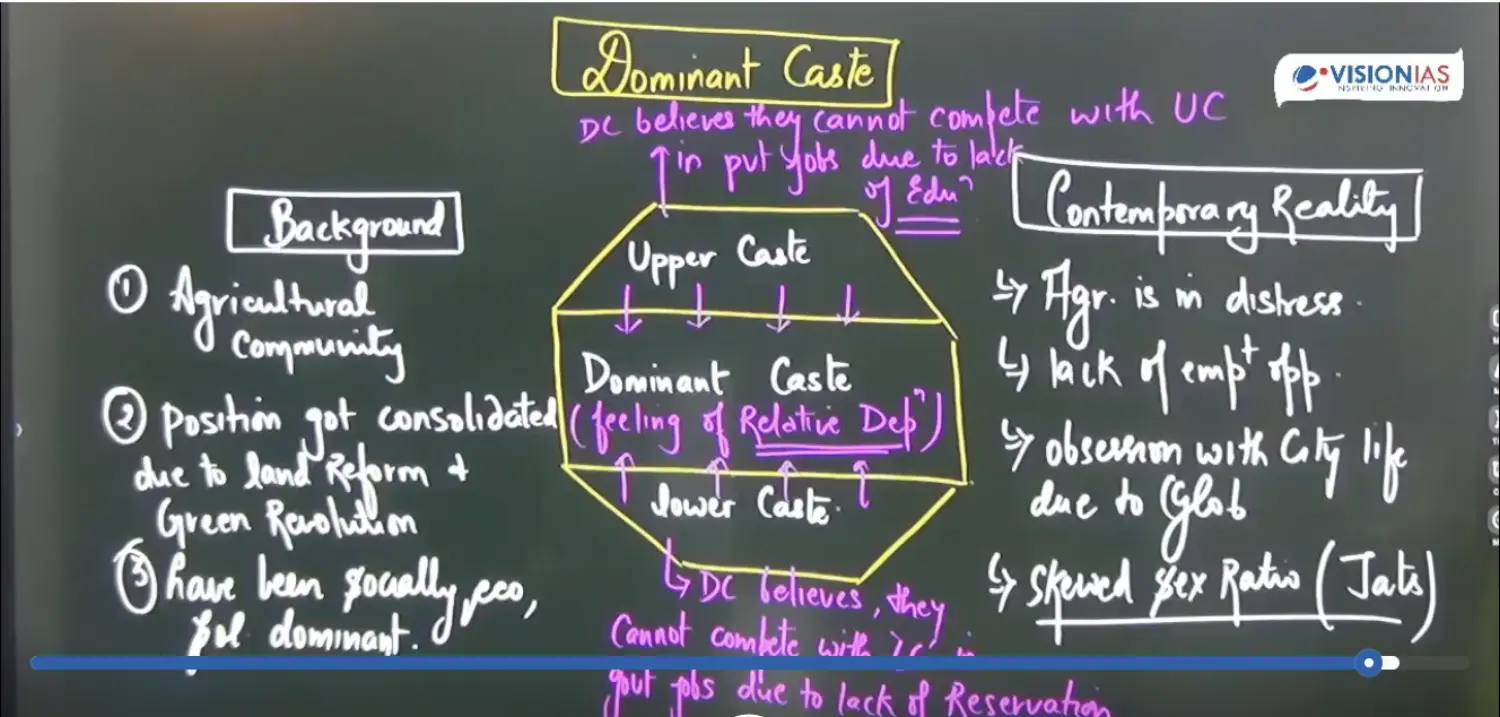 Dominant Caste
VISIONIAS
INSPIRING INNOVATION
DC believes they cannot compete with UC
in pvt jobs due to lack
of Eduⁿ
Background
① Agricultural
Community
② position got consolidated
due to land Reform +
Green Revolution
③ have been socially, eco,
pol dominant.
Upper Caste
Dominant Caste
(feeling of Relative Depⁿ)
lower Caste
↳ DC believes, they
Cannot compete with LC in
govt jobs due to lack of Reservation
Contemporary Reality
↳ Agr. is in distress.
↳ lack of empᵗ opp.
↳ obsession with City life
due to Glob
↳ Skewed sex Ratio (Jats)